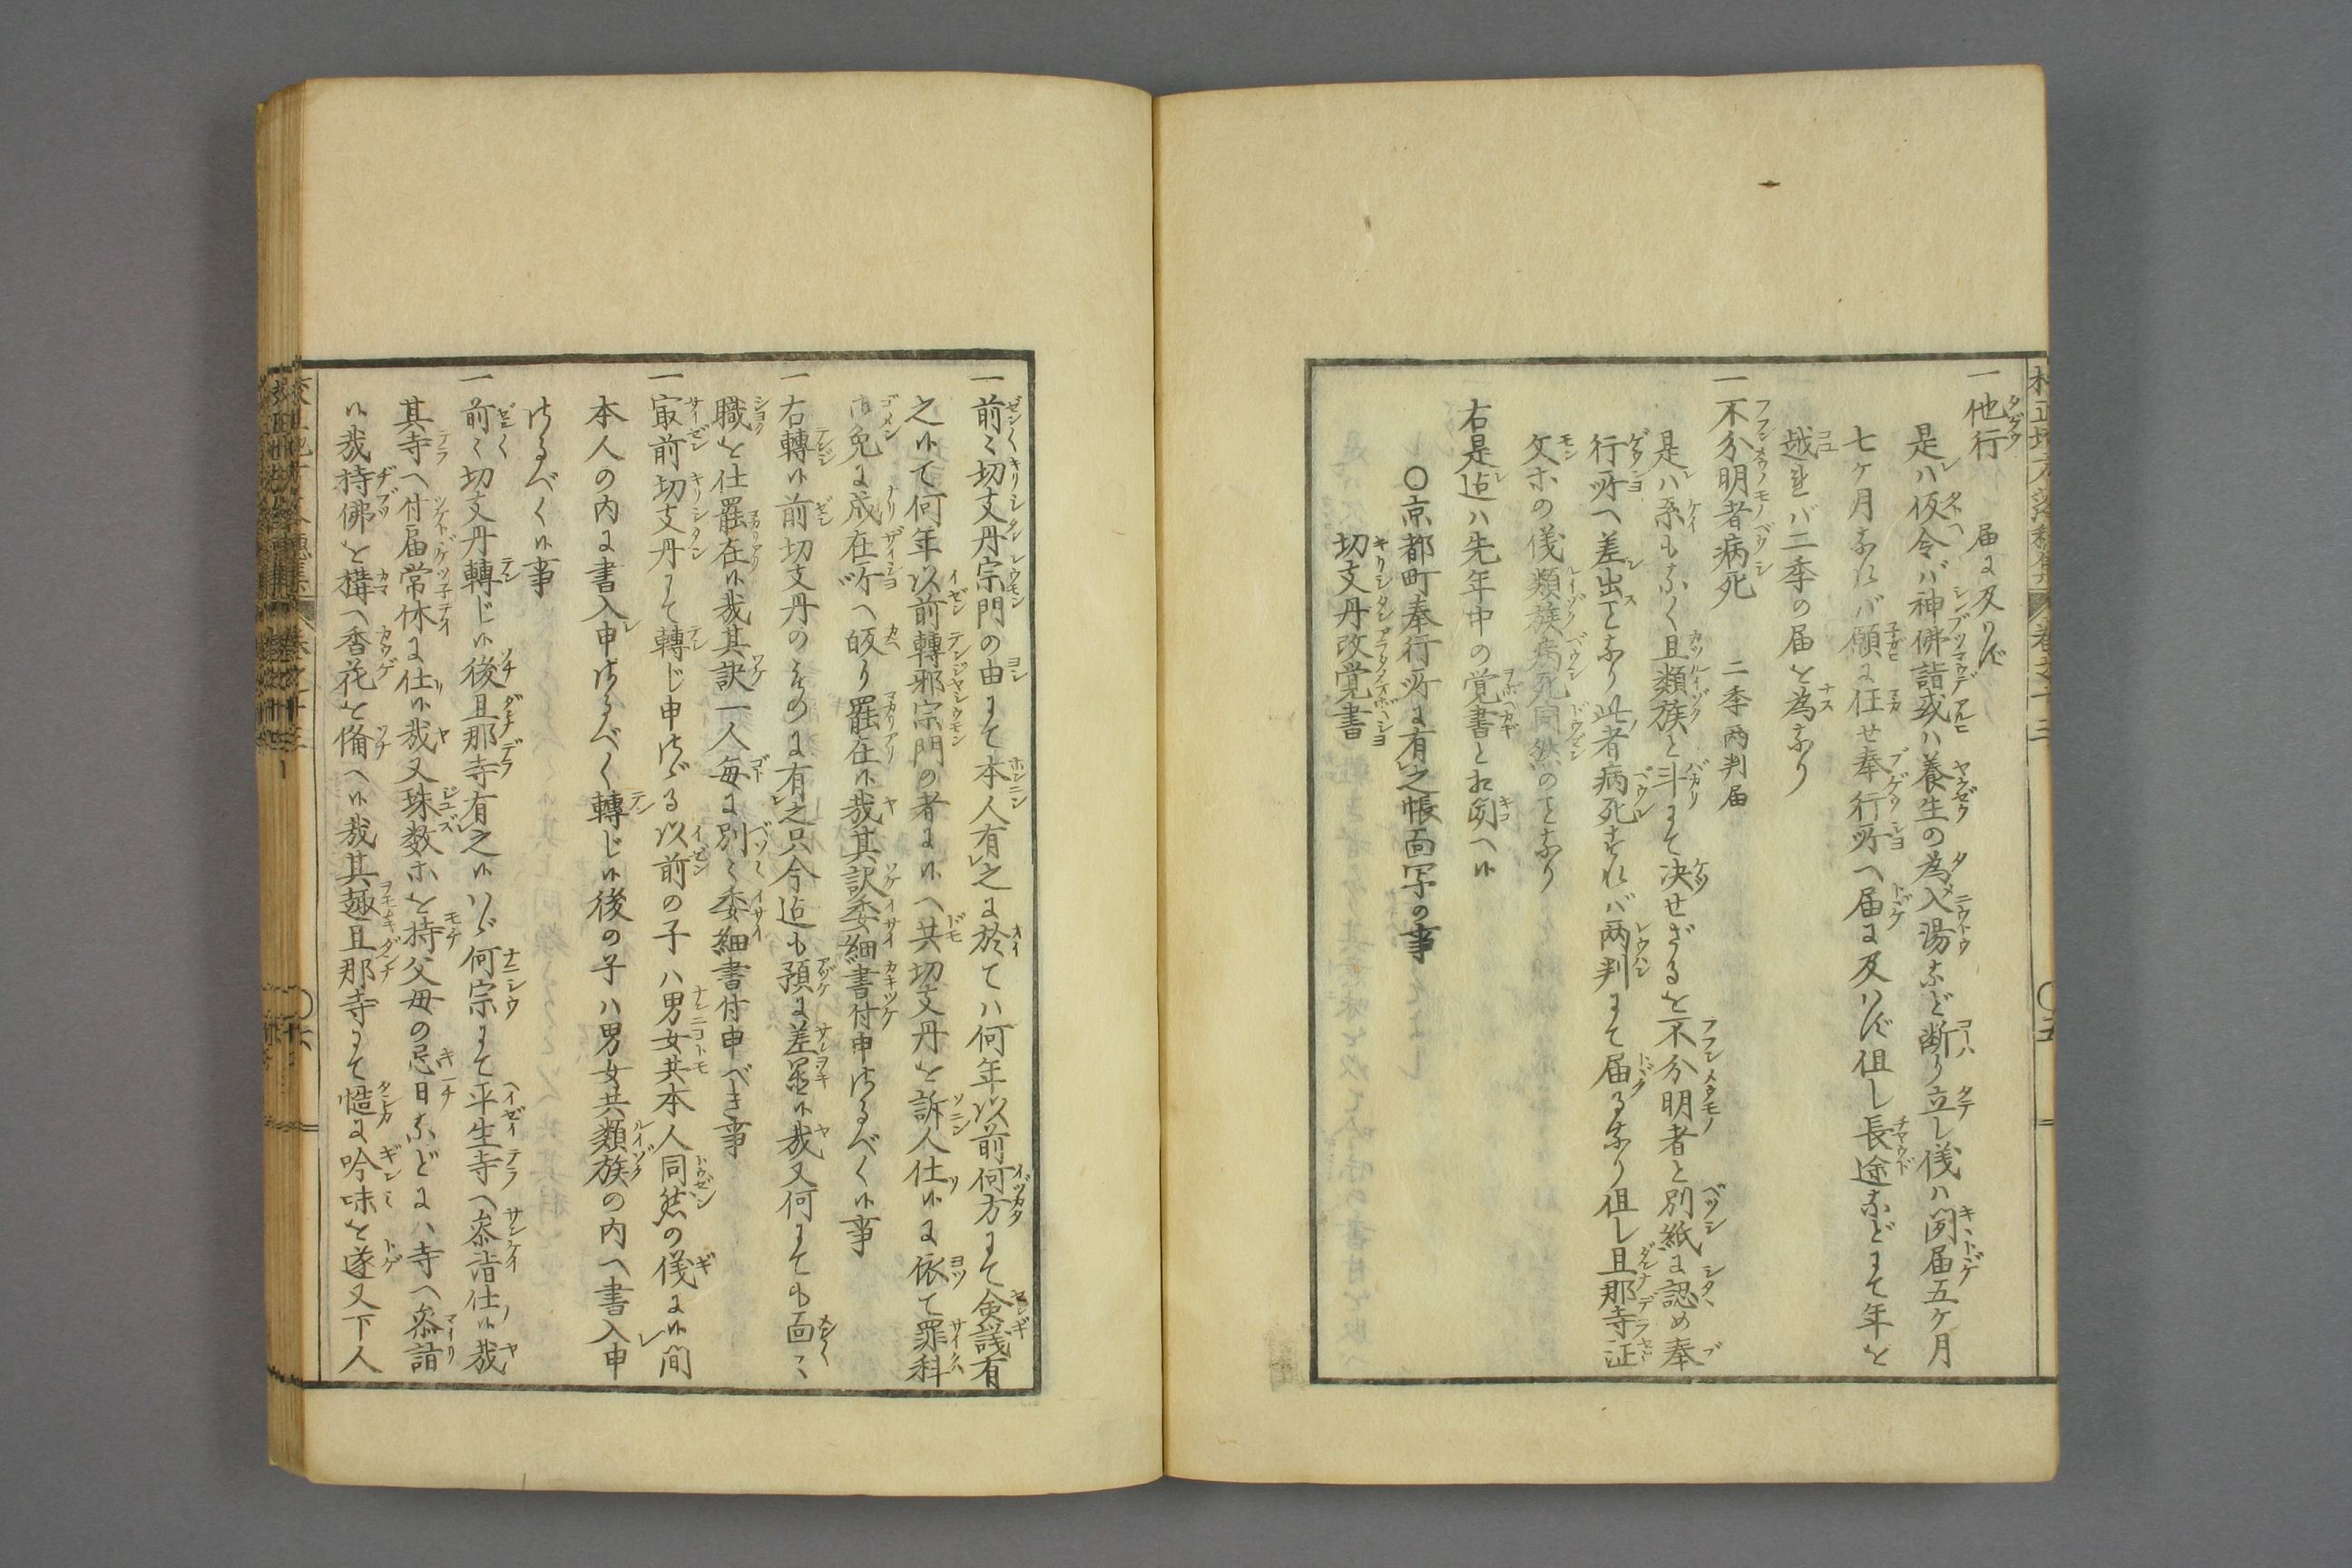 一他行　届に及ハず
是ハ仮令バ神佛詣或ハ養生の為入湯など断り立し儀ハ聞届五ケ月
七ケ月なれバ願に任せ奉行所へ届に及ハず但し長途などにて年を
越れバ二季の届を為なり
一不分明者病死　二季両判届
是ハ系もなく且類族と斗にて决せざるを不分明者と別紙に認め奉
行所へ差出ことなり此者病死すれバ両判にて届るなり但し且那寺证
文ホの儀類族病死同然のことなり
右是迠ハ先年中の覚書と相聞へ候
〇京都町奉行所に有之帳面写の事
切支丹改覚書
一前々切支丹宗門の由にて本人有之に於てハ何年以前何方にて僉議有
之候て何年以前轉邪宗門の者に候へ共切支丹を訴人仕候に依て罪科
御免に成在所へ皈り罷在候哉其訳委細書付申さるべく候事
一右轉候前切支丹のものに有之只今迠も預に差置候哉又何にても面々
職を仕罷在候哉其訣一人毎に別々委細書付申べき事
一㝡前切支丹にて轉じ申さゞる以前の子ハ男女共本人同然の儀に候間
本人の内に書入申さるべく轉じ候後の子ハ男女共類族の内へ書入申
さるべく候事
一前々切支丹轉じ候後且那寺有之候ハゞ何宗にて平生寺へ叅詣仕候哉
其寺へ付届常体に仕候哉又珠数ホを持父母の忌日などにハ寺へ叅詣
候哉持佛を構へ香花を備へ候哉其趣且那寺にて慥に吟味を遂又下人